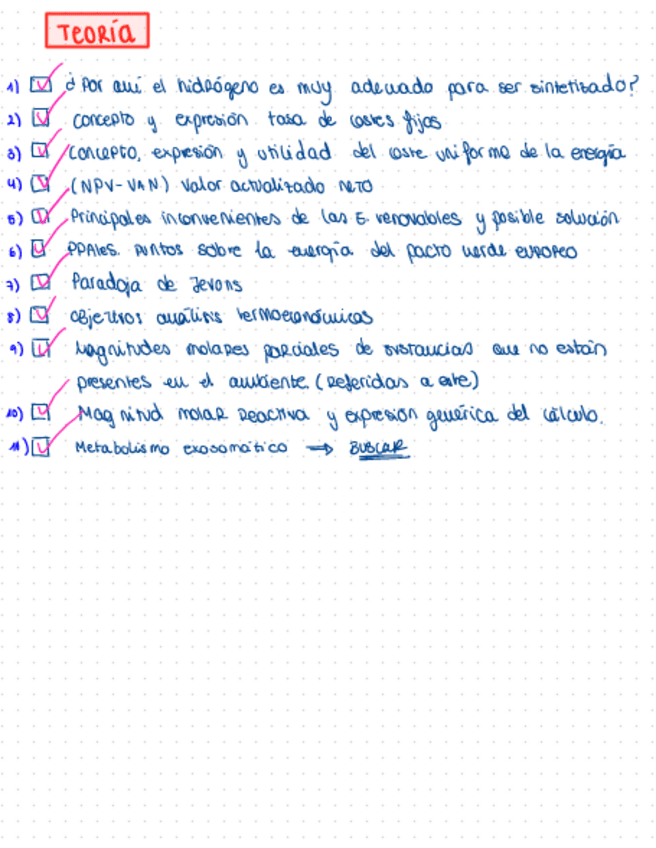 TEORÍA
1) ¿Por qué el hidrógeno es muy adecuado para ser sintetizado?
2) concepto y expresión tasa de costes fijos
3) concepto, expresión y utilidad del coste uniforme de la energía
4) (NPV-VAN) Valor actualizado neto
5) Principales inconvenientes de las E. renovables y posible solución
6) PPALES. Puntos sobre la energía del pacto verde EUROPEO
7) Paradoja de Jevons
8) objetivos análisis termoeconómicos
9) Magnitudes molares parciales de sustancias que no están
presentes en el ambiente. (Referidas a este)
10) Magnitud molar Reactiva y expresión genérica del cálculo.
11) Metabolismo exosomático → BUSCAR